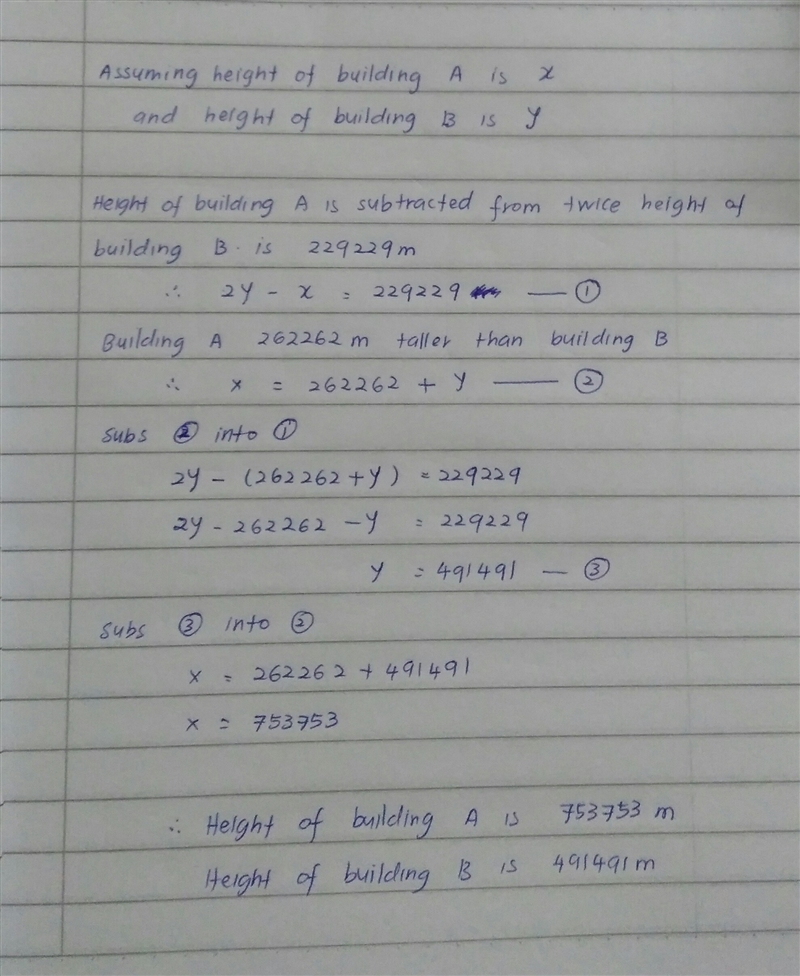 Assuming height of building A is x
and height of building B is y
Height of building A is subtracted from twice height of
building B. is 229229m
∴ 2y - x = 229229 — ①
Building A 262262m taller than building B
∴ x = 262262 + y — ②
Subs ② into ①
2y - (262262+y) = 229229
2y - 262262 - y = 229229
y = 491491 — ③
Subs ③ into ②
x = 262262 + 491491
x = 753753
∴ Height of building A is 753753 m
Height of building B is 491491m